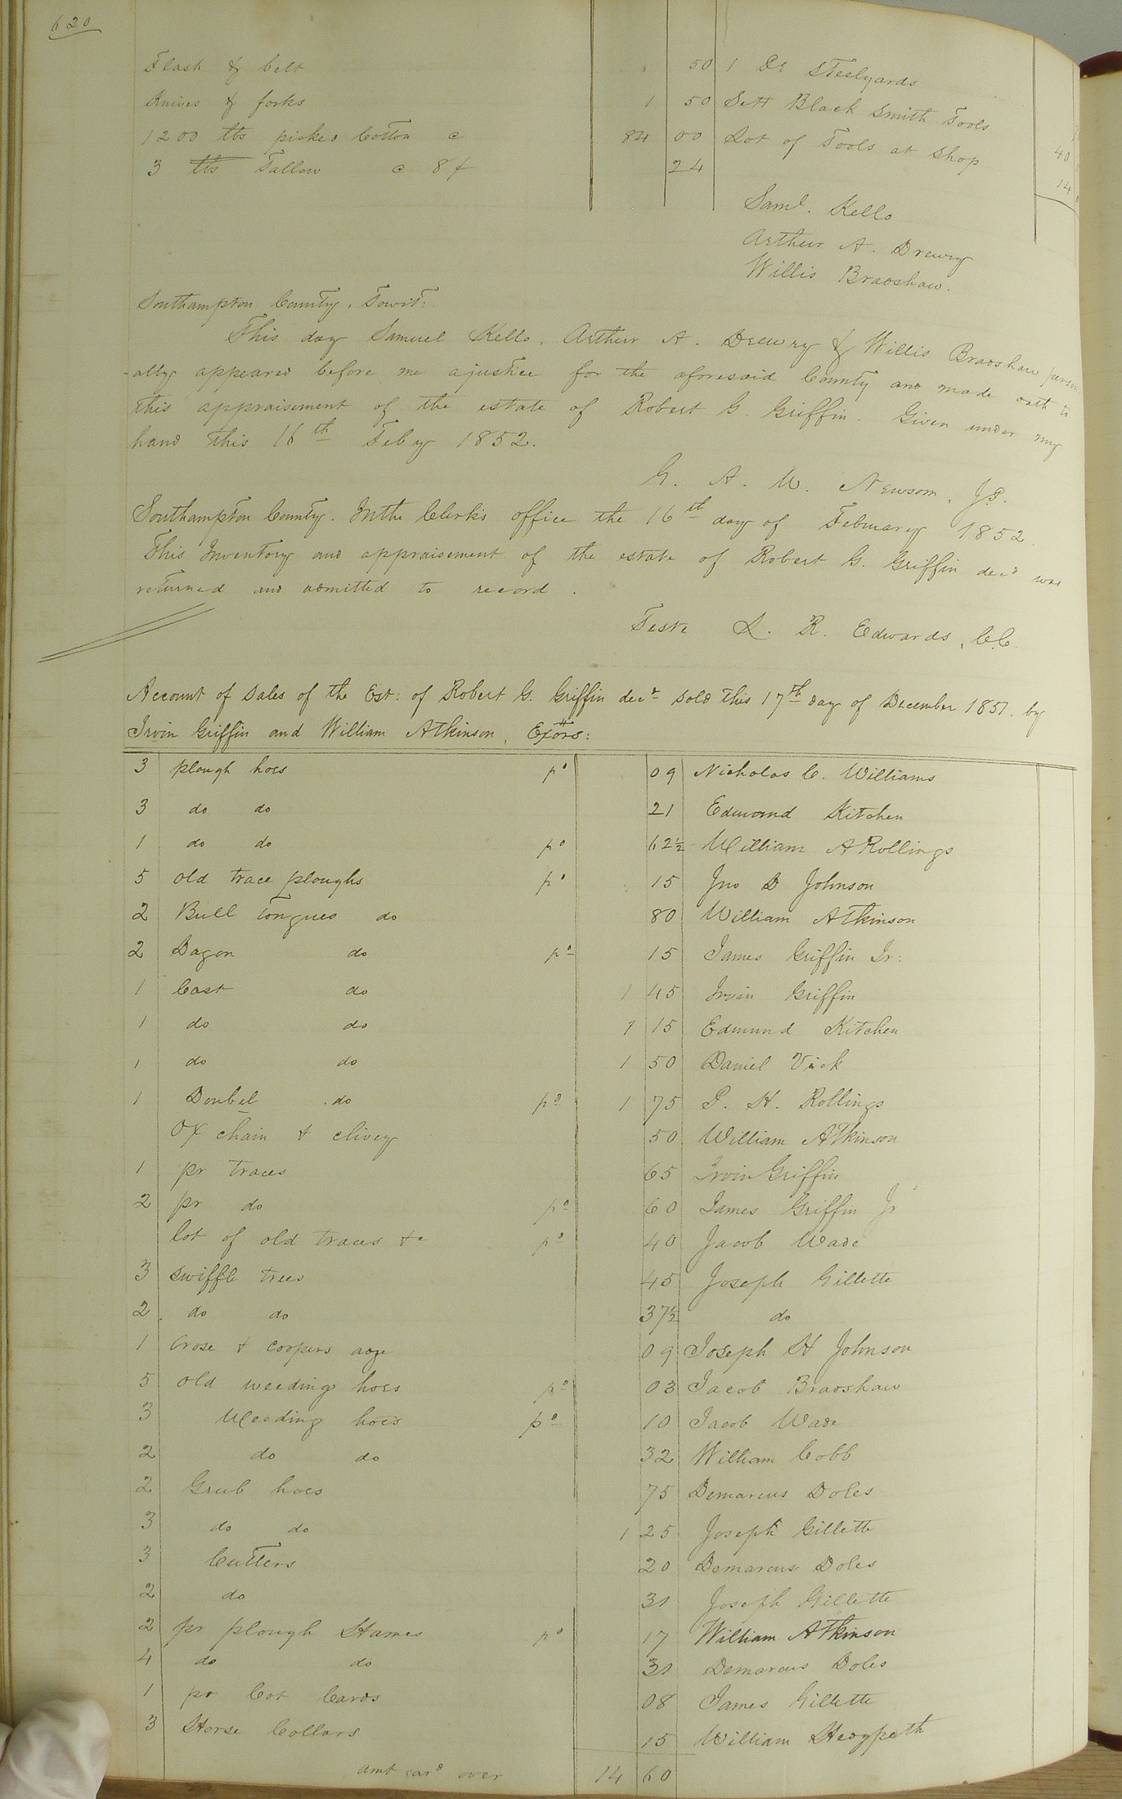 620
Flask & belt 50 1 Do Steelyards
Knives & forks 1 50 Sett Black Smith Tools
1200 lbs picked Cotton c 84 00 Lot of Tools at Shop 40
3 lbs Tallow c 8 f 24 14
Saml. Kello
Arthur A. Drewry
Willis Bradshaw.
Southampton County, Towit:
This day Samuel Kello, Arthur A. Drewry & Willis Bradshaw person
-ally appeared before me a justice for the aforesaid County and made oath to
this appraisement of the estate of Robert G. Griffin. Given under my
hand this 16th Feby 1852.
G. A. W. Newsom, JP.
Southampton County. In the Clerk's office the 16th day of February 1852.
This Inventory and appraisement of the estate of Robert G. Griffin decd was
returned and admitted to record.
Teste L. R. Edwards, C.C.
Account of Sales of the Est: of Robert G. Griffin decd sold this 17th day of December 1851. by
Irvin Griffin and William Atkinson, Exors:
3 plough hoes po 09 Nicholas C. Williams
3 do do 21 Edmond Kitchen
1 do do po 62½ William A Rollings
5 old trace ploughs po 15 Jno D Johnson
2 Bull Tongues do 80 William Atkinson
2 Dagon do po 15 James Griffin Sr:
1 Cast do 1 45 Irvin Griffin
1 do do 1 15 Edmund Kitchen
1 do do 1 50 Daniel Vick
1 Doubel do po 1 75 P. H. Rollings
Ox chain & clivey 50 William Atkinson
1 pr traces 65 Irvin Griffin
2 pr do po 60 James Griffin Jr
lot of old traces &c po 40 Jacob Wade
3 swiffle trees 45 Joseph Gillette
2 do do 37½ do
1 Crose & coopers adze 09 Joseph H Johnson
5 old weeding hoes po 03 Jacob Bradshaw
3 Weeding hoes po 10 Jacob Wade
2 do do 32 William Cobb
2 Grub hoes 75 Demarcus Doles
3 do do 1 25 Joseph Gillette
3 Cutters 20 Demarcus Doles
2 do 31 Joseph Gillette
2 pr plough Hames po 17 William Atkinson
4 do do 31 Demarcus Doles
1 pr Cot Cards 08 James Gillette
3 Horse Collars 15 William Hedgpeth
amt card over 14 60